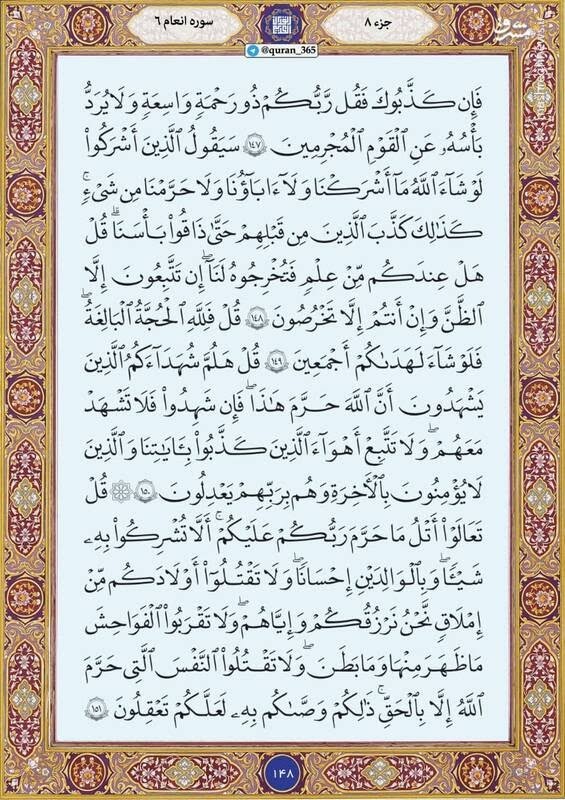 جزء ۸
سوره انعام ۶
@quran_365
فَإِن كَذَّبُوكَ فَقُل رَّبُّكُمْ ذُو رَحْمَةٍ وَٰسِعَةٍ وَلَا يُرَدُّ
بَأْسُهُۥ عَنِ ٱلْقَوْمِ ٱلْمُجْرِمِينَ ١٤٧ سَيَقُولُ ٱلَّذِينَ أَشْرَكُوا۟
لَوْ شَآءَ ٱللَّهُ مَآ أَشْرَكْنَا وَلَآ ءَابَآؤُنَا وَلَا حَرَّمْنَا مِن شَىْءٍۚ
كَذَٰلِكَ كَذَّبَ ٱلَّذِينَ مِن قَبْلِهِمْ حَتَّىٰ ذَاقُوا۟ بَأْسَنَاۗ قُلْ
هَلْ عِندَكُم مِّنْ عِلْمٍ فَتُخْرِجُوهُ لَنَآۖ إِن تَتَّبِعُونَ إِلَّا
ٱلظَّنَّ وَإِنْ أَنتُمْ إِلَّا تَخْرُصُونَ ١٤٨ قُلْ فَلِلَّهِ ٱلْحُجَّةُ ٱلْبَٰلِغَةُۖ
فَلَوْ شَآءَ لَهَدَىٰكُمْ أَجْمَعِينَ ١٤٩ قُلْ هَلُمَّ شُهَدَآءَكُمُ ٱلَّذِينَ
يَشْهَدُونَ أَنَّ ٱللَّهَ حَرَّمَ هَٰذَاۖ فَإِن شَهِدُوا۟ فَلَا تَشْهَدْ
مَعَهُمْۚ وَلَا تَتَّبِعْ أَهْوَآءَ ٱلَّذِينَ كَذَّبُوا۟ بِـَٔايَٰتِنَا وَٱلَّذِينَ
لَا يُؤْمِنُونَ بِٱلْـَٔاخِرَةِ وَهُم بِرَبِّهِمْ يَعْدِلُونَ ١٥٠ ۞ قُلْ
تَعَالَوْا۟ أَتْلُ مَا حَرَّمَ رَبُّكُمْ عَلَيْكُمْۖ أَلَّا تُشْرِكُوا۟ بِهِۦ
شَيْـًٔاۖ وَبِٱلْوَٰلِدَيْنِ إِحْسَٰنًاۖ وَلَا تَقْتُلُوٓا۟ أَوْلَٰدَكُم مِّنْ
إِمْلَٰقٍۖ نَّحْنُ نَرْزُقُكُمْ وَإِيَّاهُمْۖ وَلَا تَقْرَبُوا۟ ٱلْفَوَٰحِشَ
مَا ظَهَرَ مِنْهَا وَمَا بَطَنَۖ وَلَا تَقْتُلُوا۟ ٱلنَّفْسَ ٱلَّتِى حَرَّمَ
ٱللَّهُ إِلَّا بِٱلْحَقِّۚ ذَٰلِكُمْ وَصَّىٰكُم بِهِۦ لَعَلَّكُمْ تَعْقِلُونَ ١٥١
۱۴۸